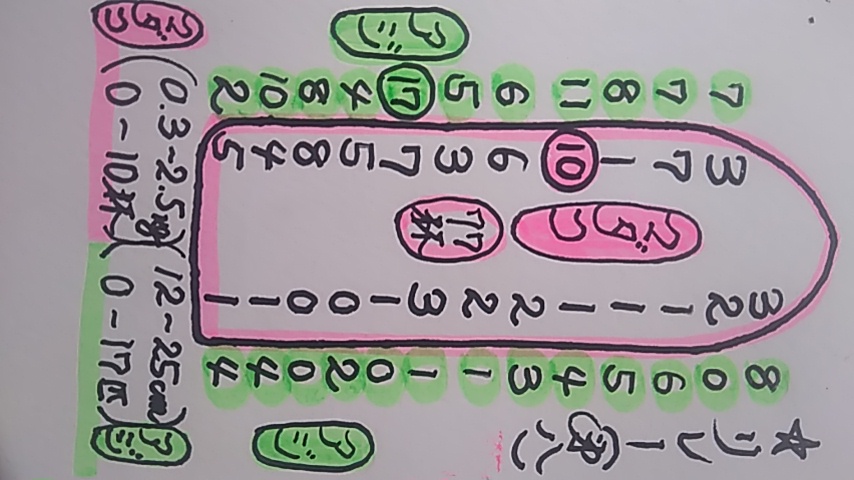 ☆リレー
3 8
7 3 2 0
7 7 1 6
8 1 1 5
11 10 1 4
6 6 2 3
5 3 2 1
17 7 3 1
1 0
4 5 0 2
8 8 0 0
10 4 1 4
2 5 1 4
アジ
マダコ
77杯
アジ
マダコ
0.3~2.5kg
0~10杯
12~25cm
0~17匹
アジ